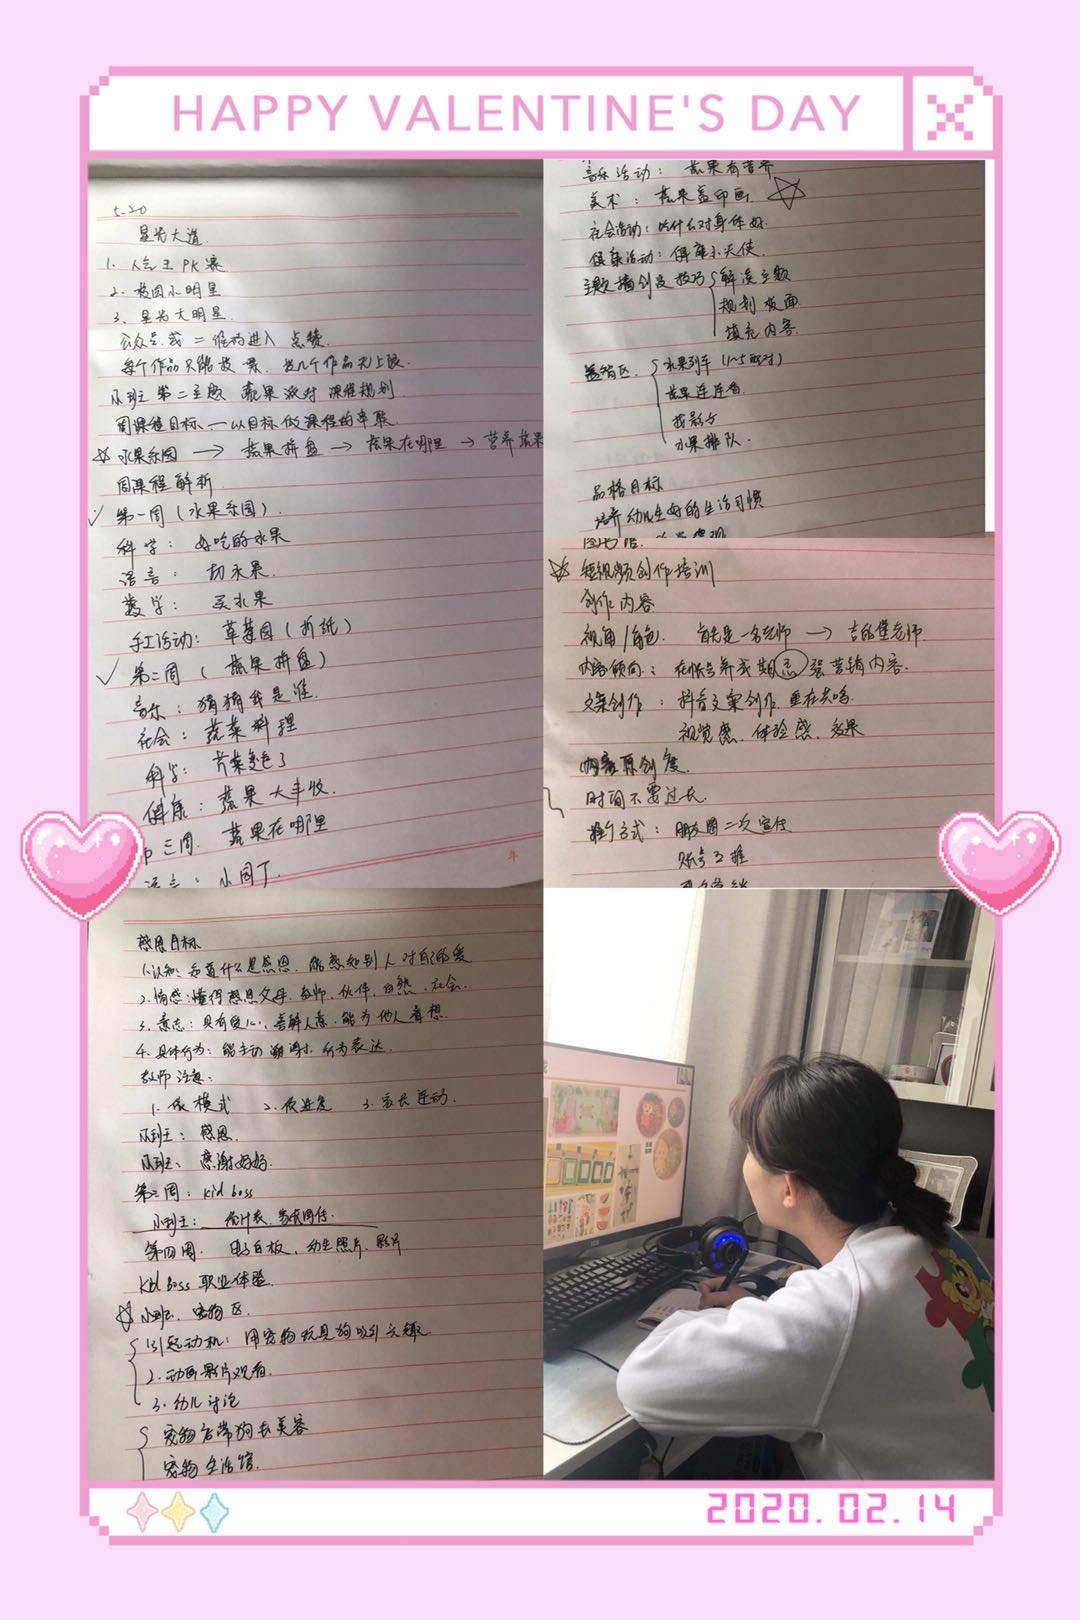 HAPPY VALENTINE'S DAY
5.20
星光大道
1. 人气王PK赛
2. 校园小明星
3. 星光大明星
公众号或二维码进入 点赞
每个作品只能投 票 投几个作品无上限
小班 第二主题 蔬果派对 课程规划
周课程目标—以目标做课程的串联
☆水果乐园 → 蔬果拼盘 → 蔬果在哪里 → 营养蔬果
周课程解析
√ 第一周(水果乐园)
科学: 好吃的水果
语言: 切水果
数学: 买水果
手工活动: 草莓园(折纸)
√ 第二周(蔬果拼盘)
音乐: 猜猜我是谁
社会: 蔬菜料理
科学: 芹菜变色了
健康: 蔬果大丰收
三周. 蔬果在哪里
语言: 小园丁
音乐活动: 蔬果有营养
美术: 蔬果盖印画 ☆
社会活动: 吃什么对身体好
健康活动: 健康小天使
主题墙创设技巧{ 解读主题
规划版面
填充内容
益智区{ 水果列车(1~5配对)
蔬果连连看
找影子
水果排队
品格目标
培养幼儿良好的生活习惯
☆ 短视频创作培训
创作内容
视角/角色. 首先是一名老师 → 吉的堡老师
内容倾向: 在帐号养成期忌强营销内容
文案创作: 抖音文案创作,重在共鸣
视觉感, 体验感, 效果
内容原创度
时间不要过长
推广方式: 朋友圈二次宣传
账号互推
感恩目标
1.认知: 知道什么是感恩, 能感知别人对自己的爱
2.情感: 懂得感恩父母, 老师, 伙伴, 自然, 社会
3.意志: 具有爱心, 善解人意, 能为他人着想
4.具体行为: 能主动 谢谢, 行为表达
教师注意:
1. 依模式 2. 依进度 3. 家长连动
小班: 感恩
小班: 感谢妈妈
第三周: kid boss
第四周. 电子白板, 幼生照片, 影片
kid boss 职业体验
☆ 小班. 宠物区
(1) 引起动机: 用宠物玩具狗吸引兴趣
2. 动画影片观看
3. 幼儿讨论
宠物店带狗去美容
宠物生活馆
2020.02.14